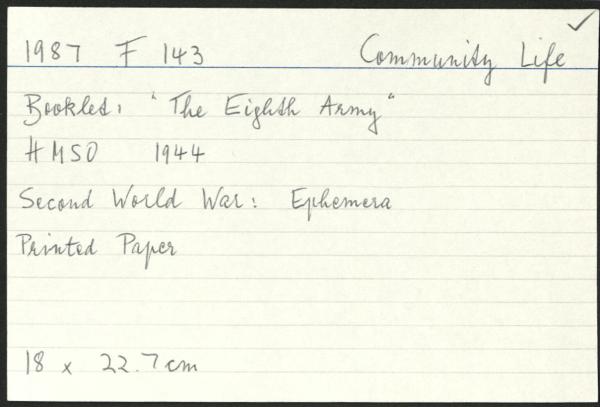 1987 F 143 Community Life
Booklet: "The Eighth Army"
HMSO 1944
Second World War: Ephemera
Printed Paper
18 x 22.7 cm